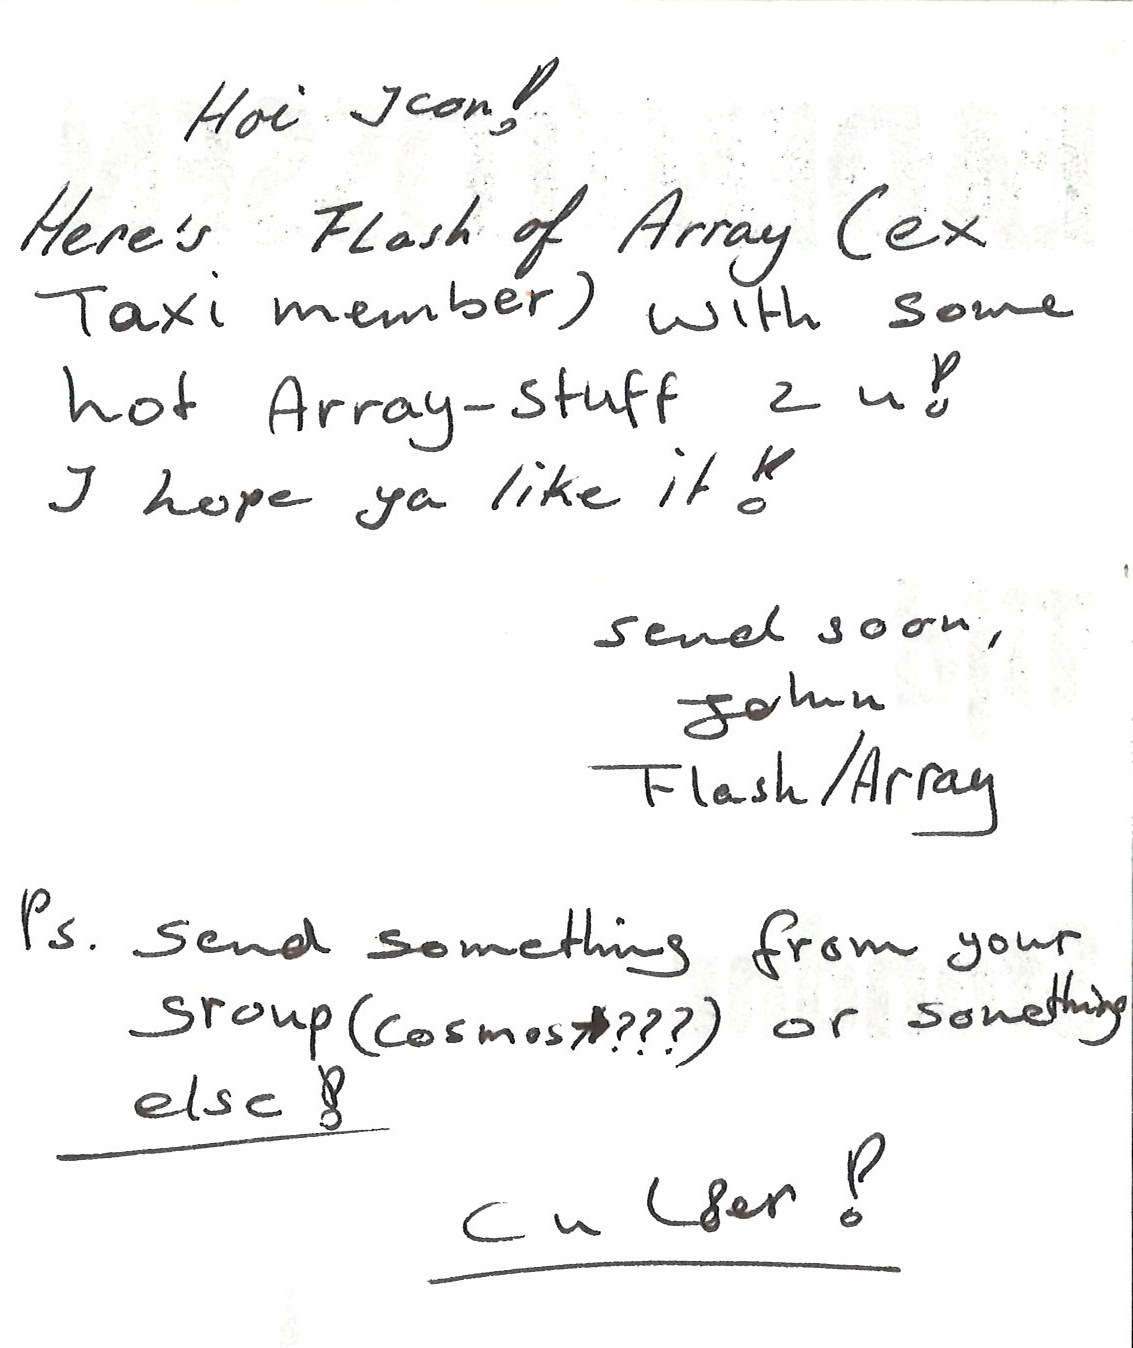 Hoi Icon!
Here's Flash of Array (ex
Taxi member) with some
hot Array-stuff 2 u!
I hope ya like it!
send soon,
John
Flash/Array
Ps. Send something from your
group (Cosmos???) or something
else!
Cu L8er!